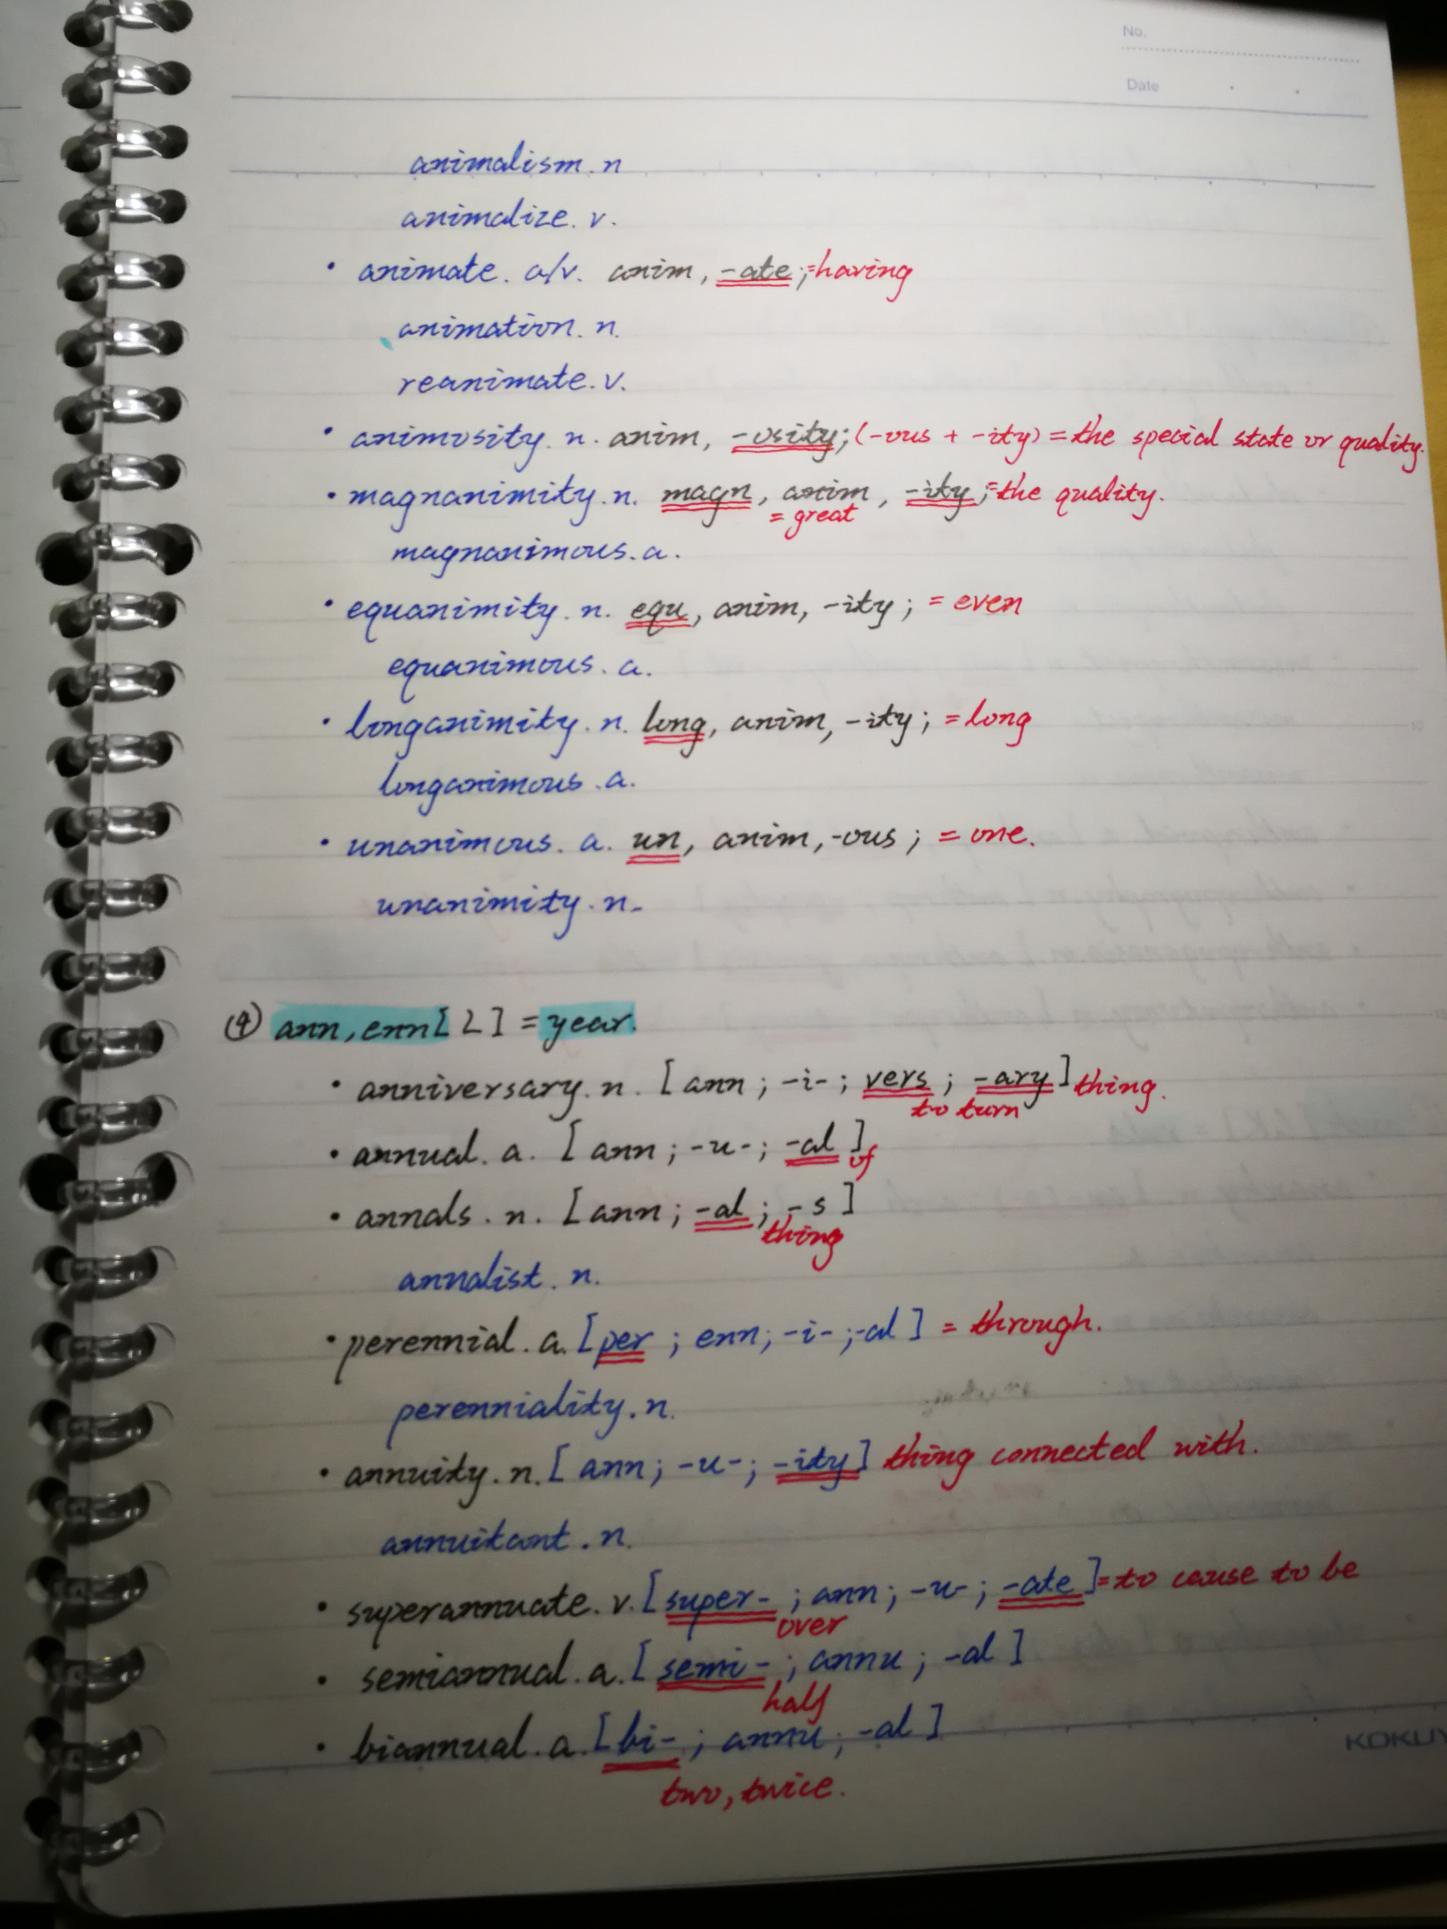 No.
Date
animalism. n
animalize. v.
· animate. a/v. anim, -ate; =having
animation. n.
reanimate. v.
· animosity. n. anim, -osity; (-ous + -ity) = the special state or quality.
· magnanimity. n. magn, anim, -ity; =the quality.
= great
magnanimous. a.
· equanimity. n. equ, anim, -ity; = even
equanimous. a.
· longanimity. n. long, anim, -ity; = long
longanimous. a.
· unanimous. a. un, anim, -ous; = one.
unanimity. n.
④ ann, enn [L] = year.
· anniversary. n. [ann; -i-; vers; -ary] thing.
to turn
· annual. a. [ann; -u-; -al]
of
· annals. n. [ann; -al; -s]
thing
annalist. n.
· perennial. a. [per; enn; -i-; -al] = through.
perenniality. n.
· annuity. n. [ann; -u-; -ity] thing connected with.
annuitant. n.
· superannuate. v. [super-; ann; -u-; -ate] = to cause to be
over
· semiannual. a. [semi-; annu; -al]
half
· biannual. a. [bi-; annu; -al]
two, twice.